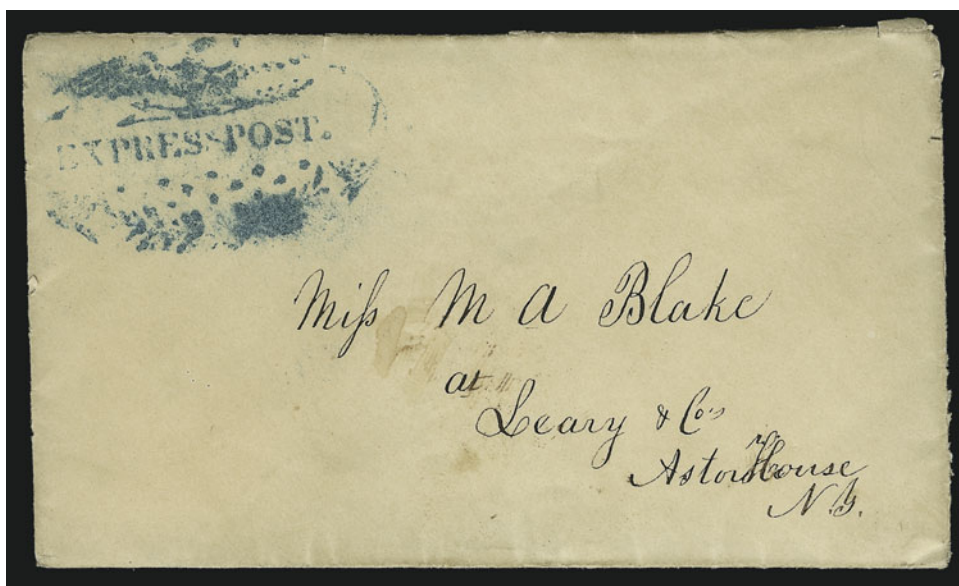 EXPRESS POST.
Miſs M A Blake
at
Leary & Co's
Astor House
N.Y.